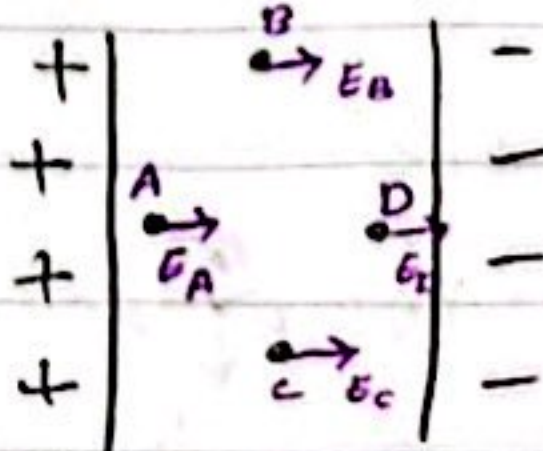 B
+ E_B -
+ A D -
E_A E_D
+ -
+ C E_C -